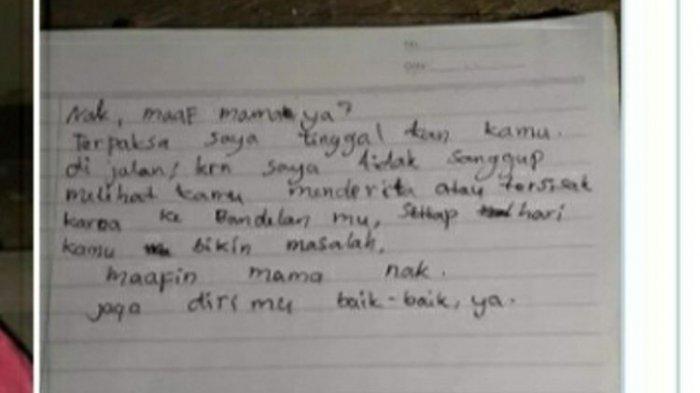 Nak, maaf mama ya?
Terpaksa saya tinggal kan kamu.
di jalan, krn saya tidak sanggup
melihat kamu menderita atau tersisak
karea ke Bandelan mu, setiap hari
kamu bikin masalah.
maafin mama nak.
jaga diri mu baik-baik, ya.